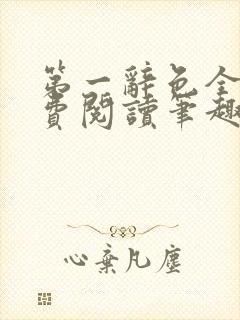 第一辭色全
費閱讀筆趣
心棄凡塵